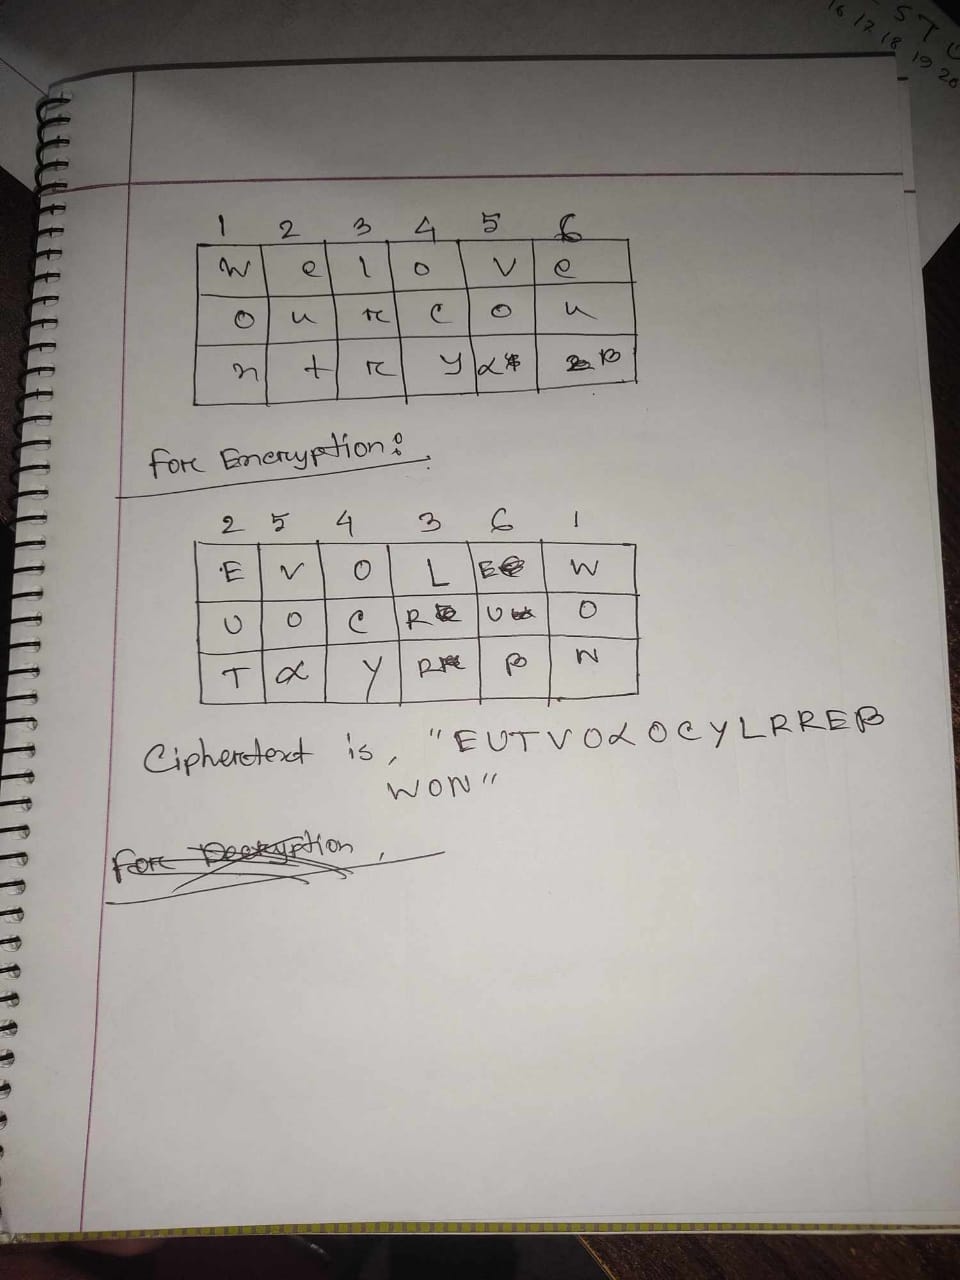 S T U
16 17 18 19 20
1 2 3 4 5 6
W e l o v e
o u r c o u
n t r y α β
For Encryption:
2 5 4 3 6 1
E V O L E W
U O C R U O
T α Y R β N
Ciphertext is, "EUTVOαOCYLRREβ
WON"
For Decryption,